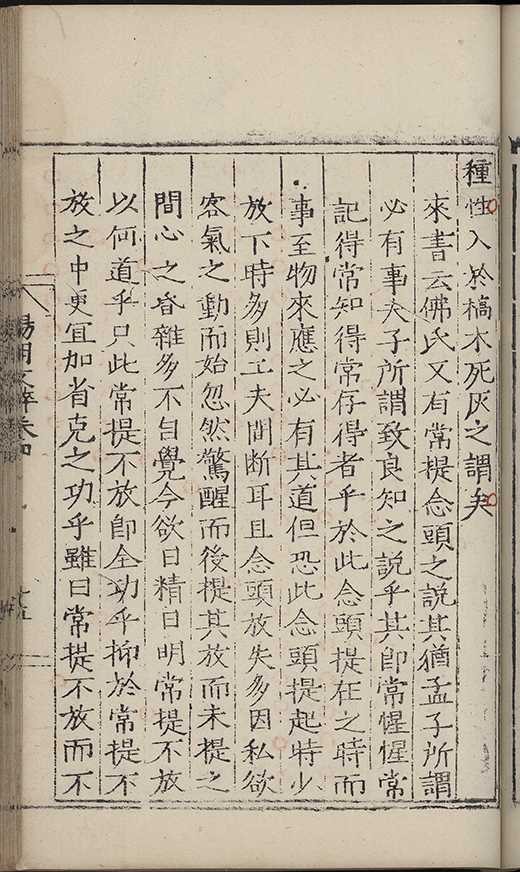 種性入於槁木死灰之謂矣
來書云佛氏又有常提念頭之說其猶孟子所謂
必有事夫子所謂致良知之說乎其卽常惺惺常
記得常知得常存得者乎於此念頭提在之時而
事至物來應之必有其道但恐此念頭提起時少
放下時多則工夫間断耳且念頭放失多因私欲
客氣之動而始忽然驚醒而後提其放而未提之
間心之昏雜多不自覺今欲日精日明常提不放
以何道乎只此常提不放卽全功乎抑於常提不
放之中更宜加省克之功乎雖曰常提不放而不
陽明文粹卷四
十五